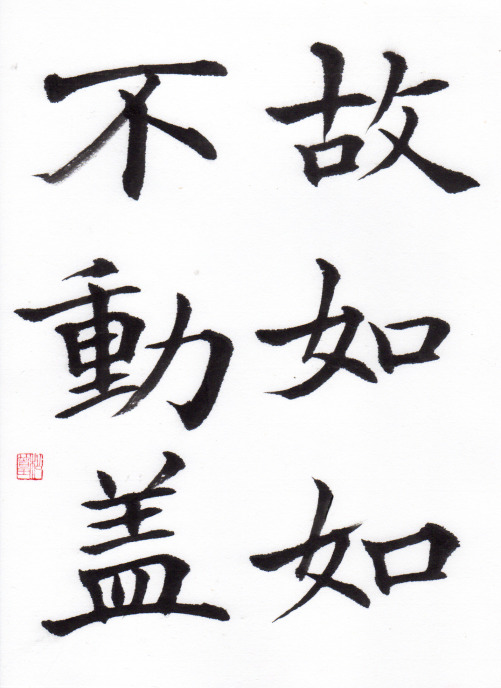 故如如
不動盖